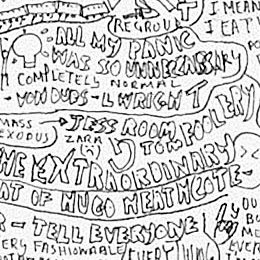 I MEAN
REGROUP
I EAT
ALL MY PANIC
WAS SO UNNECESSARY
COMPLETELY NORMAL
VON DUBS - L WRIGHT
MASS
EXODUS
JESS ROOM TOM FOOLERY
ZARA
THE EXTRAORDINARY
AT OF HUGO HEATHCOTE -
- TELL EVERYONE
YOU
FASHIONABLE
EVERYTHING